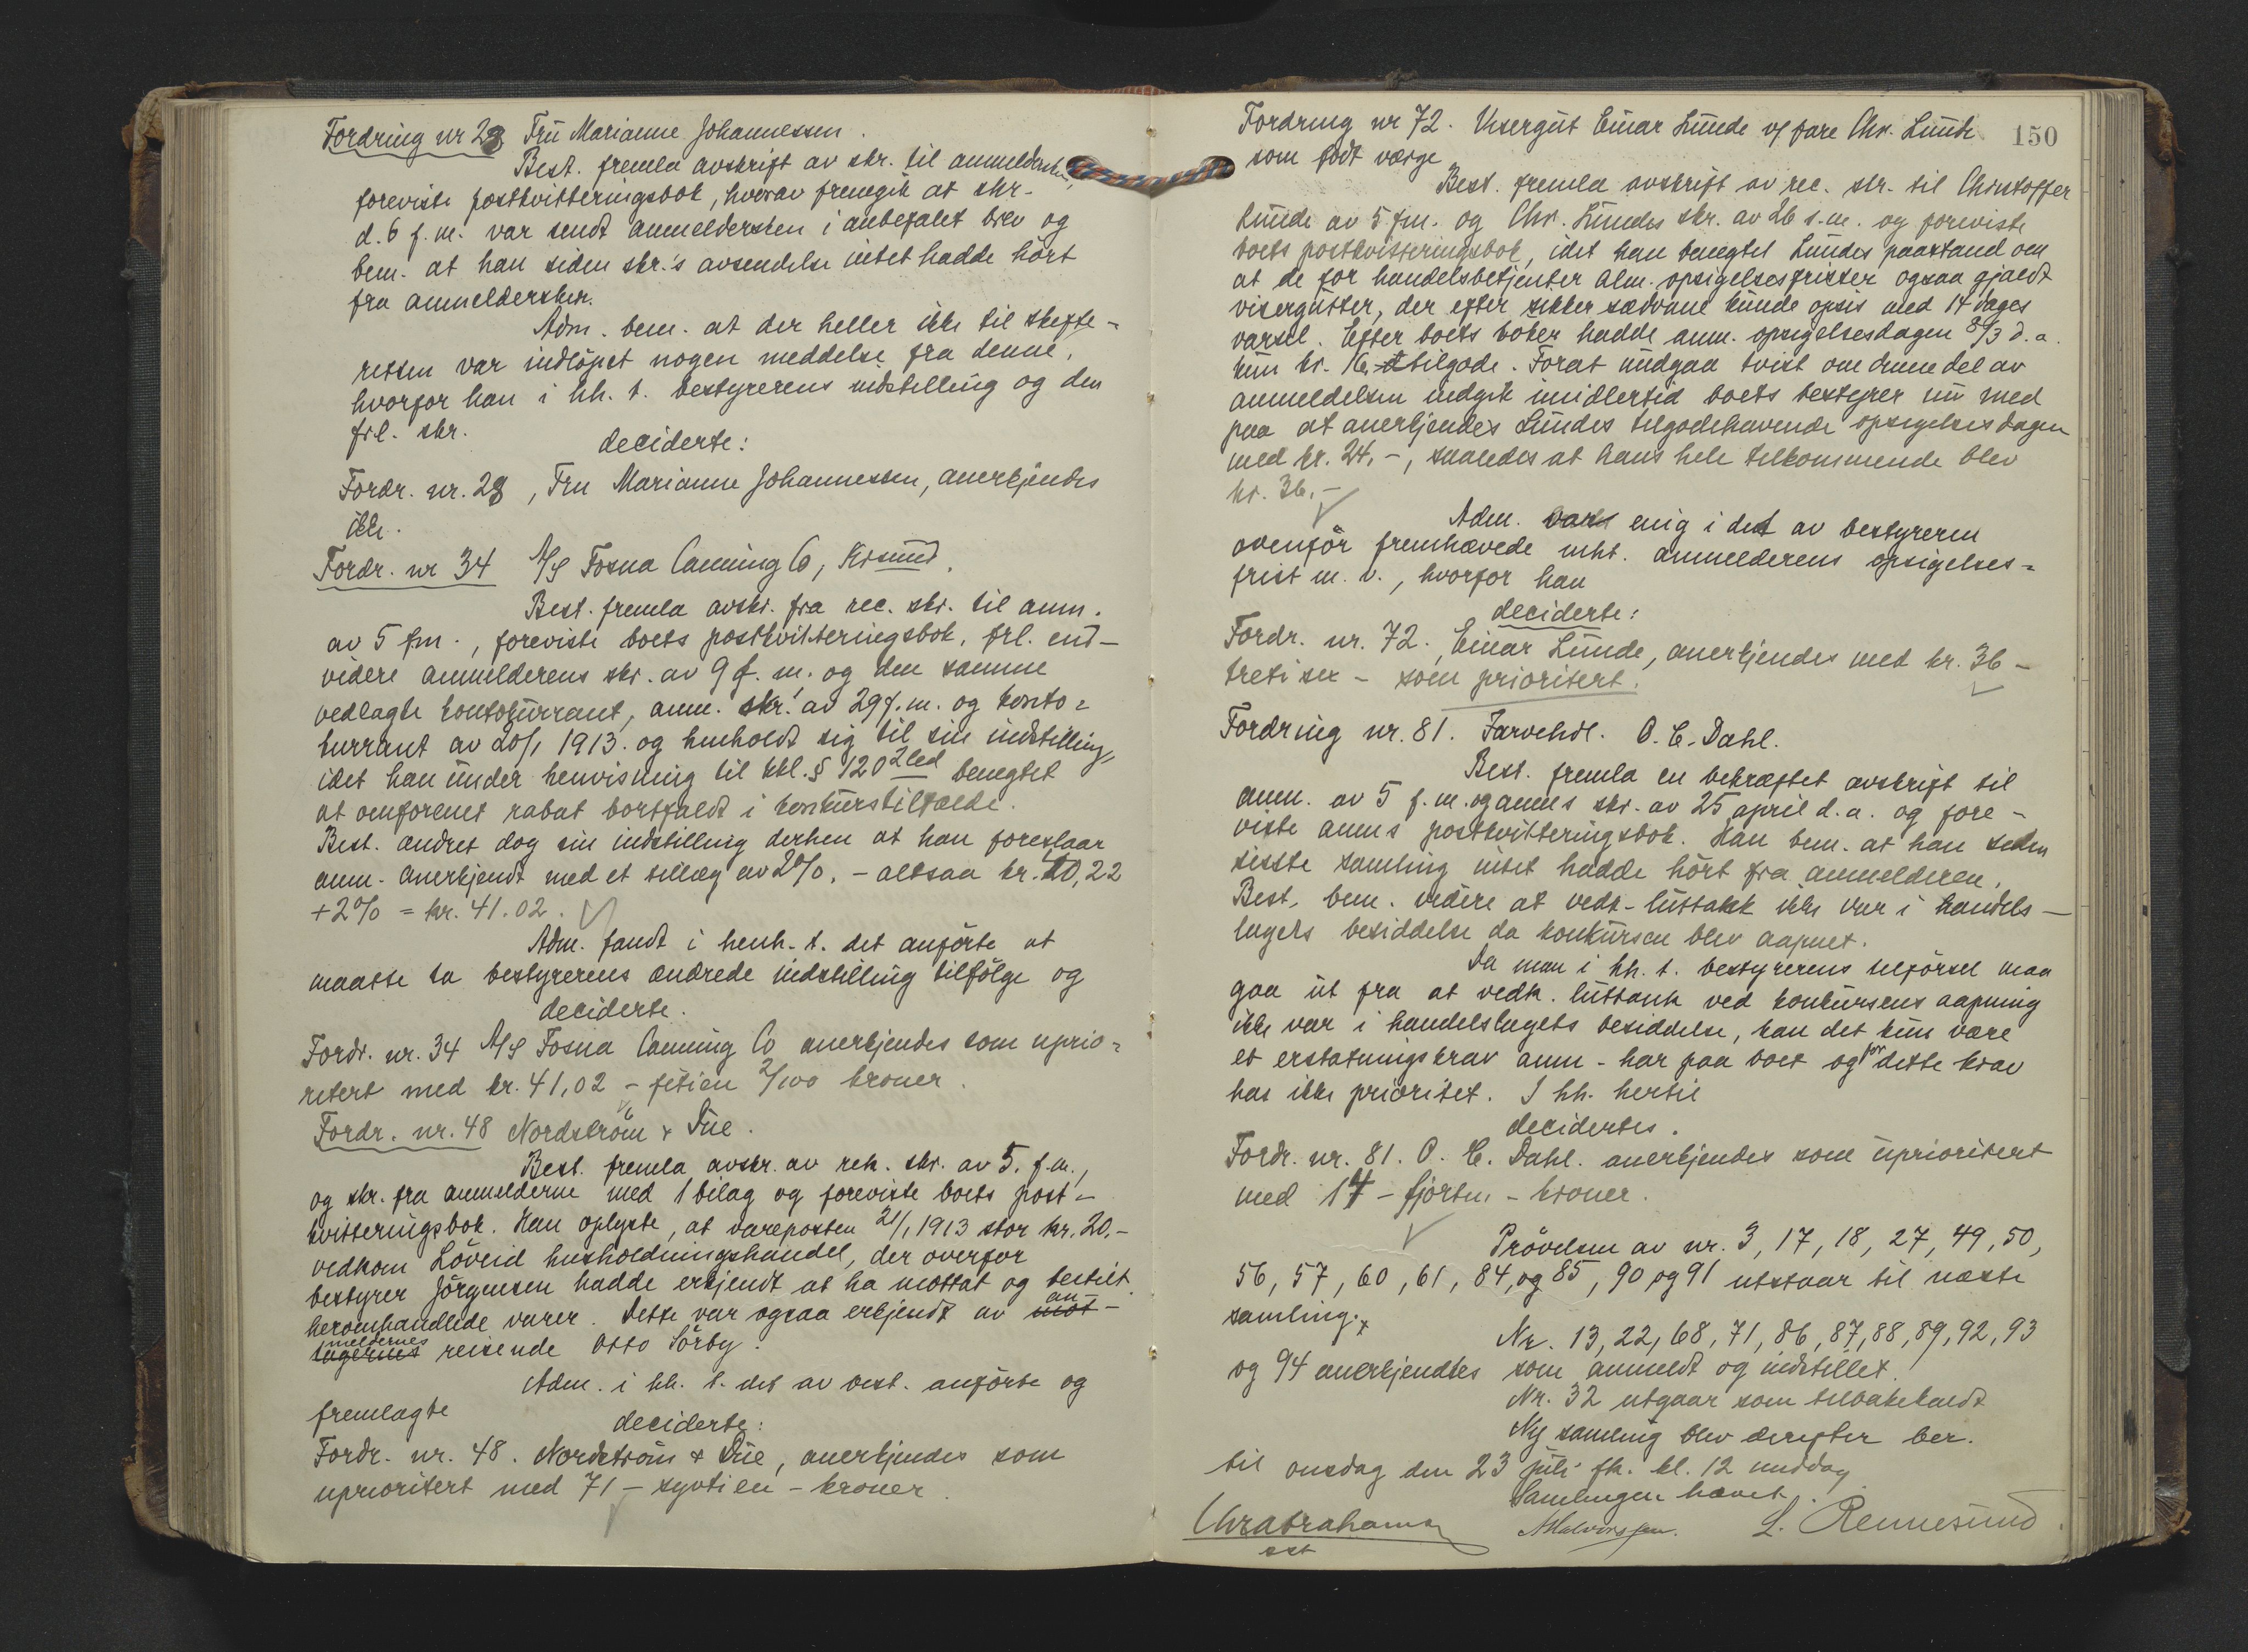 Fordring nr 28 Fru Marianne Johannessen.
Best. fremla avskrift av skr. til anmeldersken,
foreviste postkvitteringsbok, hvorav fremgik at skr.
d. 6 f.m. var sendt anmeldersken i anbefalet brev og
bem. at han siden skr.'s avsendelse intet hadde hört
fra anmeldersken.
Adm. bem. at der heller ikke til skifte-
retten var indlöpet nogen meddelse fra denne,
hvorfor han i hh. t. bestyrerens indstilling og den
frl. skr.
deciderte:
Fordr. nr. 28, Fru Marianne Johannessen, anerkjendes
ikke.
Fordr. nr 34 A/S Fosna Canning Co, Krsund.
Best. fremla avskr. fra rec. skr. til anm.
av 5 f.m., foreviste boets postkvitteringsbok, frl. end-
videre anmelderens skr. av 9 f.m. og den samme
vedlagte kontokurrant, anm. skr. av 29 f.m. og konto-
kurrant av 20/1 1913. og henholdt sig til sin indstilling,
idet han under henvisning til kkl. § 120 2 led benegtet
at omforenet rabat bortfaldt i konkurstilfælde.
Best. ændret dog sin indstilling derhen at han foreslaar
anm. anerkjendt med et tillæg av 2%. – altsaa kr. 40,22
+ 2% = kr. 41.02.
Adm. fandt i henh. t. det anförte at
maatte ta bestyrerens ændrede indstilling tilfölge og
deciderte.
Fordr. nr. 34 A/S Fosna Canning Co anerkjendes som uprio-
ritert med kr. 41,02 – fetien 2/100 kroner.
Fordr. nr. 48 Nordström & Due.
Best. fremla avskr. av rek. skr. av 5. f.m.,
og skr. fra anmelderne med 1 bilag og foreviste boets post-
kvitteringsbok. Han oplyste, at vareposten 21/1 1913 stor kr. 20.-
vedkom Löveid husholdningshandel, der overfor
bestyrer Jörgensen hadde erkjendt at ha mottat og bestilt
heromhandlede varer. Dette var ogsaa erkjendt av mot- an-
tagernes meldernes reisende Otto Sörby.
Adm. i hh. t. det av best. anförte og
fremlagte
deciderte:
Fordr. nr. 48. Nordström & Due, anerkjendes som
uprioritert med 71 – syvtien – kroner.
150
Fordring nr 72. Visergut Einar Lunde v/ fare Chr. Lunde
som födt værge
Best. fremla avskrift av rec. skr. til Christoffer
Lunde av 5 f.m. og Chr. Lundes skr. av 26 s.m. og foreviste
boets postkvitteringsbok, idet han benegtet Lundes paastand om
at de for handelsbetjenter alm. opsigelsesfrister ogsaa gjaldt
visergutter, der efter sikker sædvane kunde opsis med 14 dages
varsel. Efter boets böker hadde anm. opsigelsesdagen 8/3 d.a.
kun kr. 16,- tilgode. Forat undgaa tvist om denne del av
anmeldelsen indgik imidlertid boets bestyrer nu med
paa at anerkjendes Lundes tilgodehavende opsigelsesdagen
med kr. 24,-, saaledes at hans hele tilkommende blev
kr. 36.-
Adm. var enig i det av bestyreren
ovenför fremhævede mht. anmelderens opsigelses-
frist m.v., hvorfor han
deciderte:
Fordr. nr. 72., Einar Lunde, anerkjendes med kr. 36 –
tretisex – som prioritert.
Fordring nr. 81. Farvehdl. O. C. Dahl.
Best. fremla en bekræftet avskrift til
anm. av 5 f.m. og anm's skr. av 25 april d.a. og fore-
viste anm's postkvitteringsbok. Han bem. at han siden
sisste samling intet hadde hört fra anmelderen.
Best. bem. videre at vedk. luttank ikke var i handels-
lagets besiddelse da konkursen blev aapnet.
Da man i hh. t. bestyrerens tilförsel maa
gaa ut fra at vedk. luttank ved konkursens aapning
ikke var i handelslagets besiddelse, kan det kun være
et erstatningskrav anm. har paa boet og for dette krav
has ikke prioritet. I hh. hertil
decidertes.
Fordr. nr. 81. O. C. Dahl. anerkjendes som uprioritert
med 14 – fjorten – kroner.
Prövelsen av nr. 3, 17, 18, 27, 49, 50,
56, 57, 60, 61, 84, og 85, 90 og 91 utstaar til næste
samling.
Nr. 13, 22, 68, 71, 86, 87, 88, 89, 92, 93
og 94 anerkjendtes som anmeldt og indstillet.
Nr. 32 utgaar som tilbakekaldt
Ny samling blev derefter ber.
til onsdag den 23 juli fk. kl. 12 middag
Samlingen hævet.
Chr Abrahams
sst
A Halvorssen. L. Rennesund.